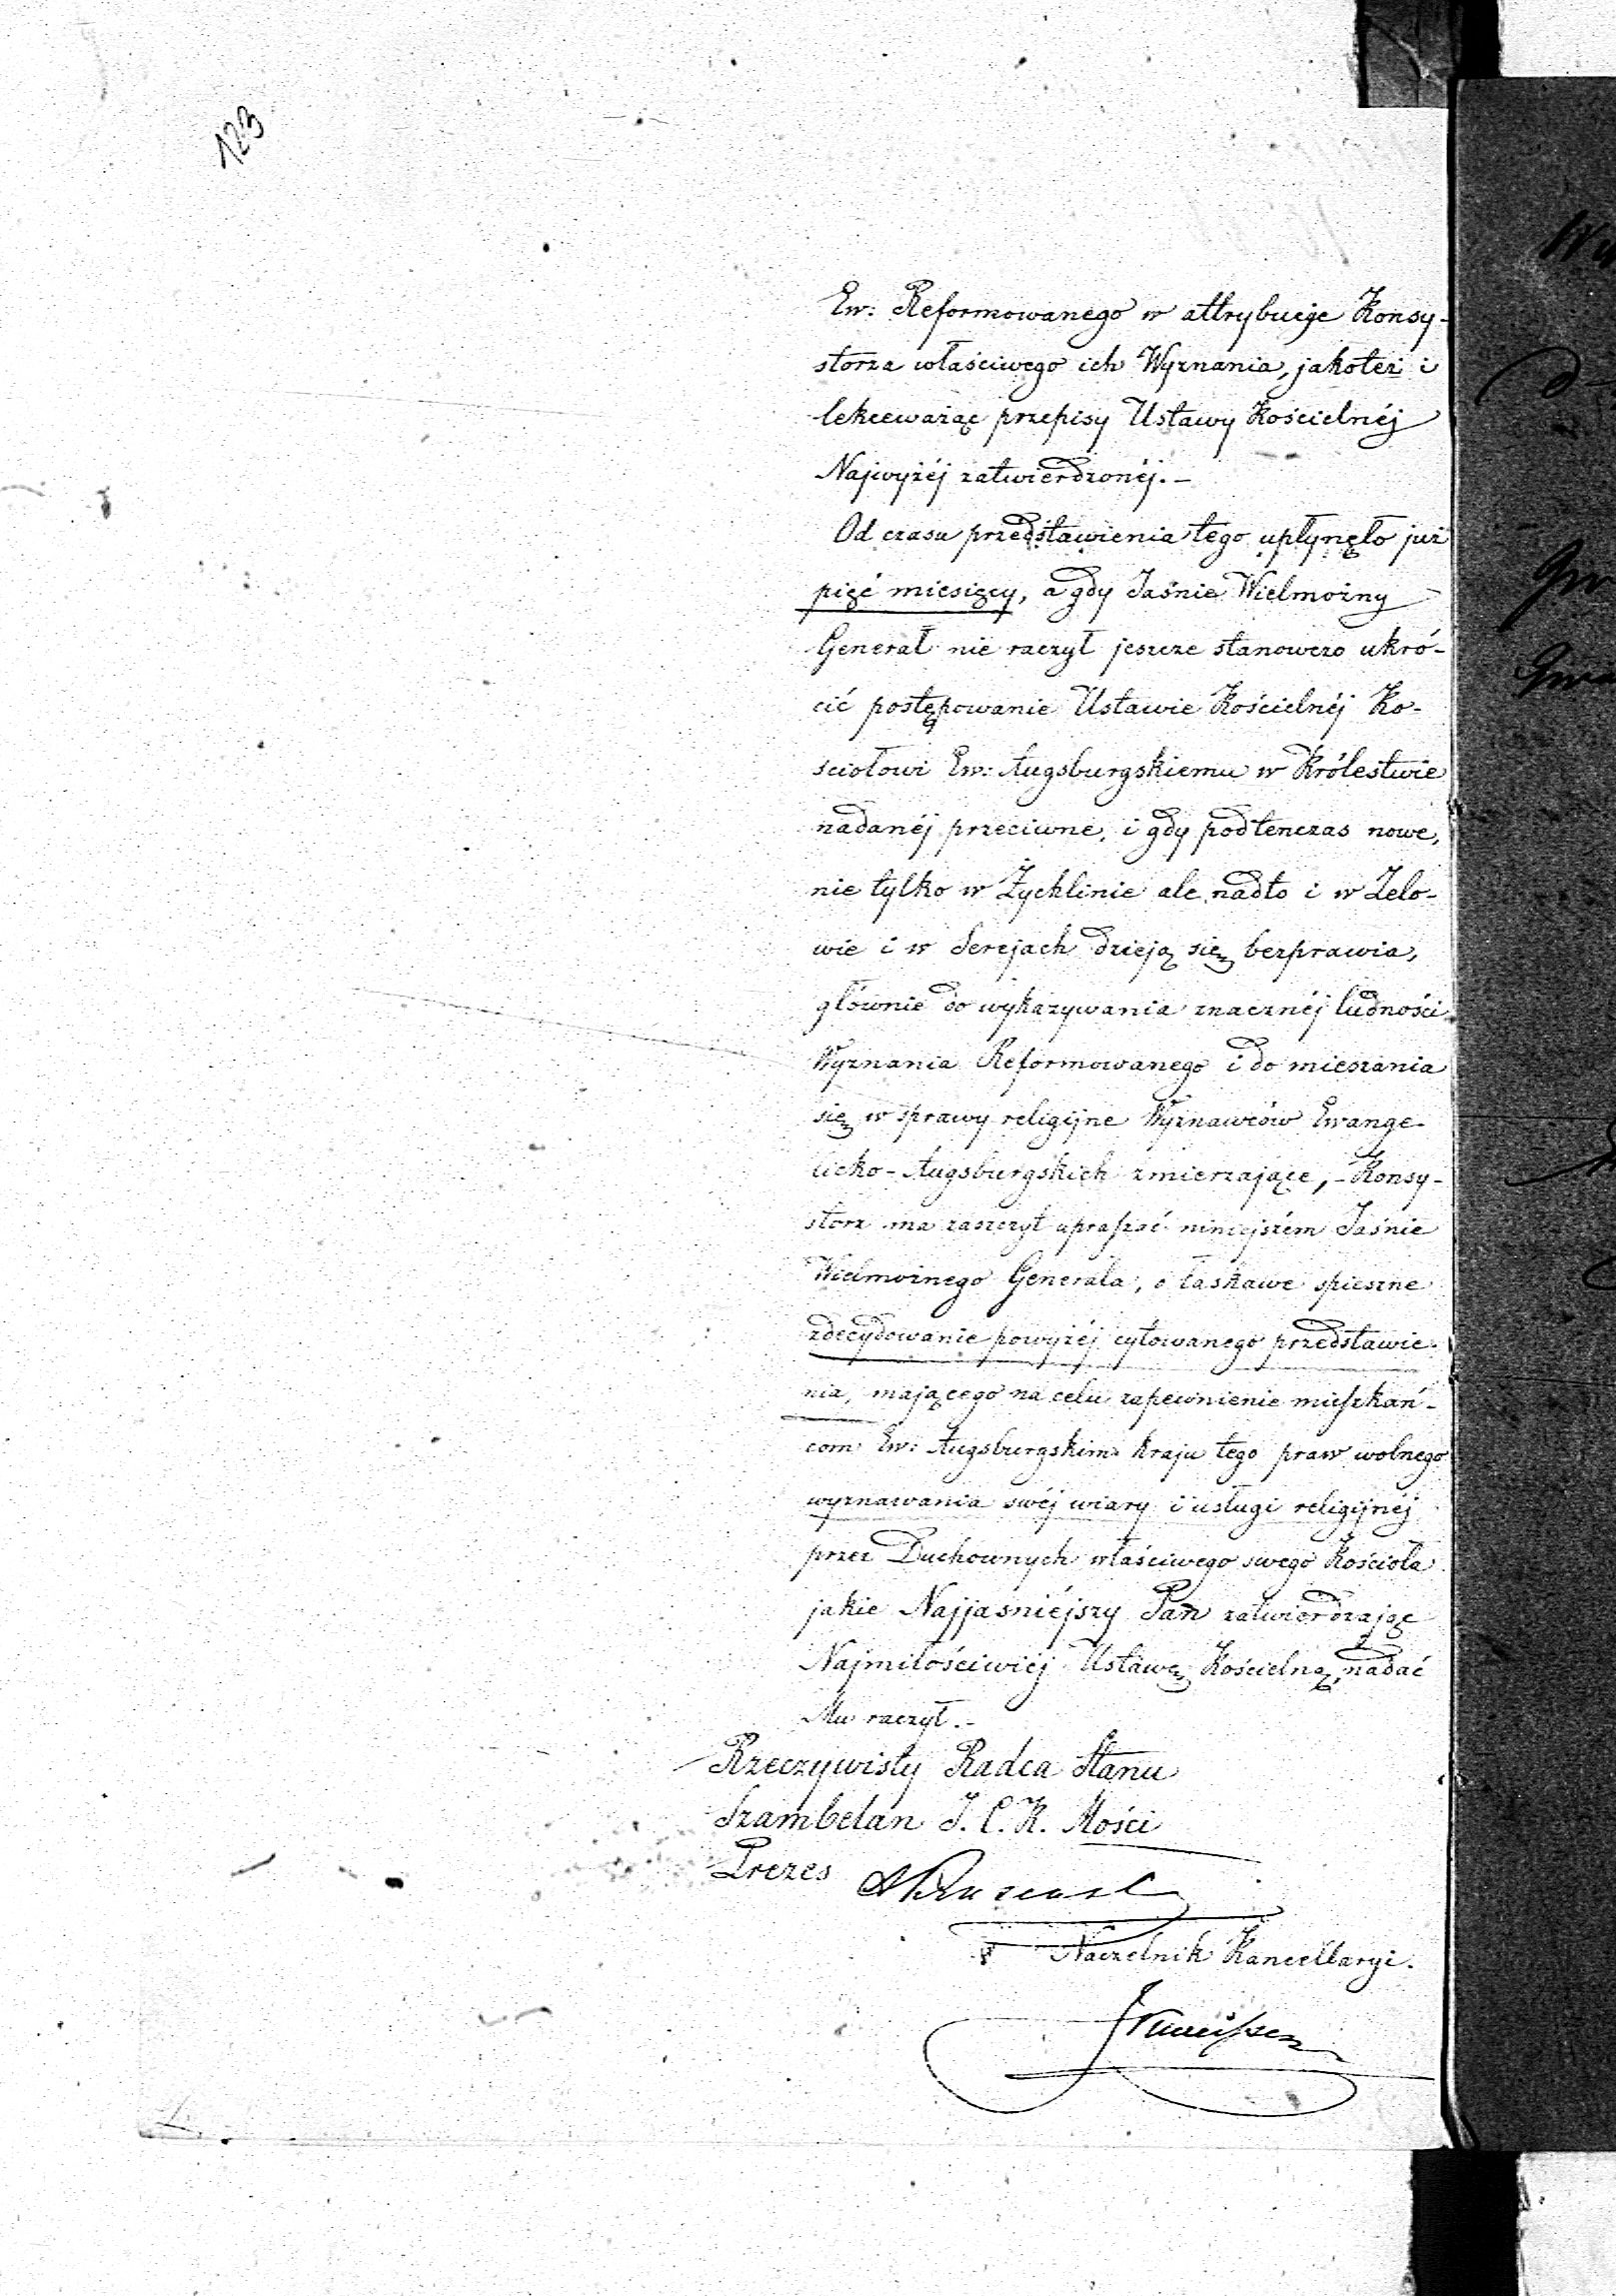 123
Ew: Reformowanego w attrybucje Konsy-
storza właściwego ich Wyznania, jakoteż i
lekceważąc przepisy Ustawy Kościelnéj
Najwyżéj zatwierdzonéj.-
Od czasu przedstawienia tego upłynęło już
pięć miesięcy, a gdy Jaśnie Wielmożny
Generał nie raczył jeszcze stanowczo ukró-
cić postępowanie Ustawie Kościelnéj Ko-
ściołowi Ew: Augsburgskiemu w Królestwie
nadanéj przeciwne, i gdy podtenczas nowe,
nie tylko w Żychlinie ale nadto i w Zelo-
wie i w Serejach dzieją się bezprawia,
głównie do wykazywania znacznéj ludności
Wyznania Reformowanego i do mieszania
się w sprawy religijne Wyznawców Ewange-
licko-Augsburgskich zmierzające,- Konsy-
storz ma zaszczyt upraszać niniejszém Jaśnie
Wielmożnego Generała, o łaskawe spieszne
zdecydowanie powyżéj cytowanego przedstawie-
nia, mającego na celu zapewnienie mieszkań-
com Ew: Augsburgskim kraju tego praw wolnego
wyznawania swéj wiary i usługi religijnéj
przez Duchownych właściwego swego Kościoła
jakie Najjaśniéjszy Pan zatwierdzając
Najmiłościwiéj Ustawę Kościelną, nadać
Mu raczył.-
Rzeczywisty Radca Stanu
Szambelan J. C. K. Mości
Prezes
Naczelnik Kancellaryi.